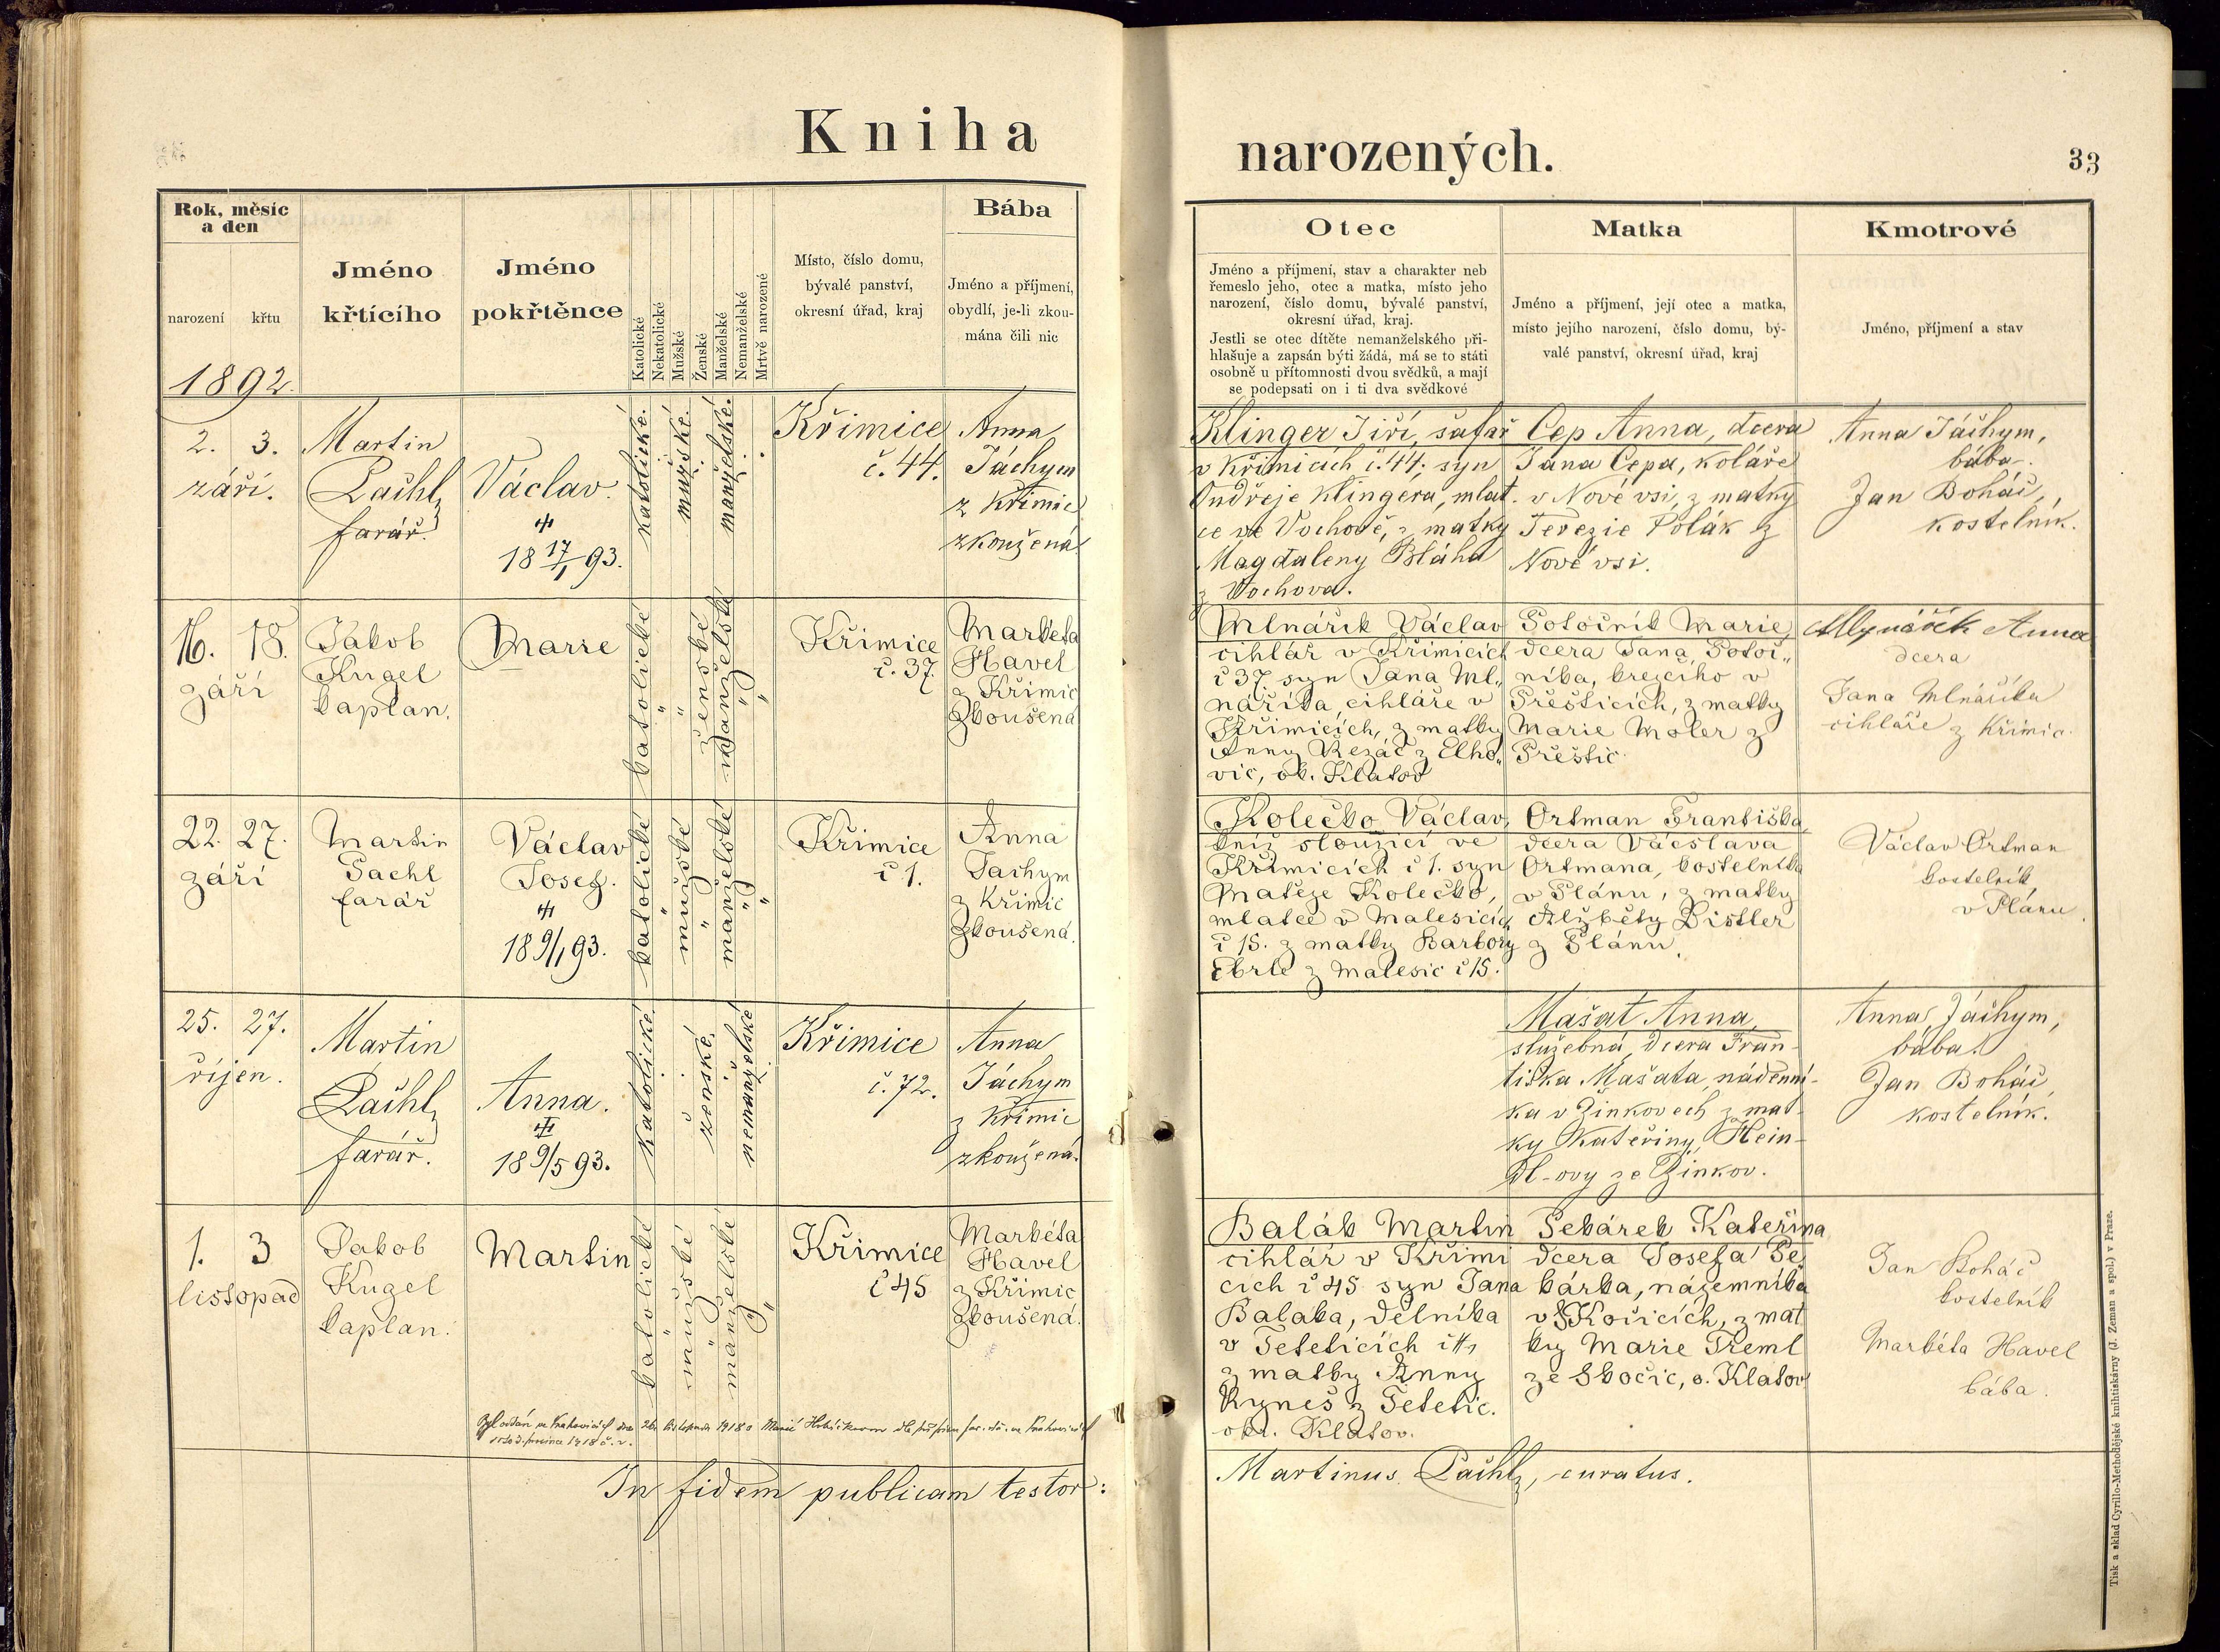 Kniha
narozených.
33
Rok, měsíc
a den
narození
křtu
1892.
Jméno
křtícího
Jméno
pokřtěnce
Katolické
Nekatolické
Mužské
Ženské
Manželské
Nemanželské
Mrtvě narozené
Místo, číslo domu,
bývalé panství,
okresní úřad, kraj
Bába
Jméno a příjmení,
obydlí, je-li zkou-
mána čili nic
Otec
Jméno a příjmení, stav a charakter neb
řemeslo jeho, otec a matka, místo jeho
narození, číslo domu, bývalé panství,
okresní úřad, kraj.
Jestli se otec dítěte nemanželského při-
hlašuje a zapsán býti žádá, má se to státi
osobně u přítomnosti dvou svědků, a mají
se podepsati on i ti dva svědkové
Matka
Jméno a příjmení, její otec a matka,
místo jejího narození, číslo domu, bý-
valé panství, okresní úřad, kraj
Kmotrové
Jméno, příjmení a stav
2. 3.
září.
Martin
Pachl,
farář.
Václav.
18 17/1 93.
katolické.
mužské.
manželské.
Křimice
č. 44.
Anna
Jáchym
z Křimic
zkoušená
Klinger Jiří, šafář
v Křimicích č. 44; syn
Ondřeje Klingera, mlat.
ce ve Vochově, z matky
Magdaleny Bláha
z Vochova.
Cep Anna, dcera
Jana Cepa, koláře
v Nové vsi, z matky
Terezie Polák z
Nové vsi.
Anna Jáchym,
bába.
Jan Boháč,
kostelník.
16. 18.
září
Jakob
Kugel
kaplan.
Marie
katolické
ženské
manželské
Křimice
č. 37.
Markéta
Havel
z Křimic
zkoušená
Mlnářík Václav
cihlář v Křimicích
č 37 syn Jana Ml„
náříka, cihláře v
Křimicích, z matky
Anny Řezáč z Elho„
vic, ok. Klatov
Potočník Marie,
dcera Jana Potoč„
níka, krejčího v
Přešticích, z matky
Marie Moler z
Přeštic.
Mlynářík Anna
dcera
Jana Mlnáříka
cihláře z Křimic.
22. 27.
září
Martin
Pachl
farář
Václav
Josef.
18 9/1 93.
katolické
mužské
manželské
Křimice
č 1.
Anna
Jachym
z Křimic
zkoušená.
Kolečko Václav,
kníž sloužící ve
Křimicích č 1. syn
Matěje Kolečko,
mlatce v Malesicích
č 15. z matky Barbory
Ebrle z Malesic č 15.
Ortman Františka,
dcera Václava
Ortmana, kostelníka
v Plánu, z matky
Alžběty Distler
z Plánu.
Václav Ortman
kostelník
v Plánu.
25. 27.
říjen.
Martin
Pachl,
farář.
Anna.
18 9/5 93.
katolické.
ženské.
nemanželské
Křimice
č. 72.
Anna
Jáchym
z Křimic
zkoušená.
Mašat Anna,
služebná, dcera Fran-
tiška Mašata, nádenní-
ka v Žinkovech z mat-
ky Kateřiny Hein-
dl-ovy ze Žinkov.
Anna Jáchym,
bába.
Jan Boháč
kostelník.
1. 3
listopad
Jakob
Kugel
kaplan.
Martin
katolické
mužské
manželské
Křimice
č 45
Markéta
Havel
z Křimic
zkoušená.
Balák Martin
cihlář v Křimi
cích č 45 syn Jana
Baláka, dělníka
v Teteticích č
z matky Anny
Kyneš z Tetetic.
okr. Klatov.
Pekárek Kateřina
dcera Josefa Pe
kárka, nájemníka
v Kočicích, z mat
ky Marie Treml
ze Skočic, o. Klatov
Jan Boháč
kostelník
Markéta Havel
bába.
In fidem publicam testor:
Martinus Pachl, curatus.
Tisk a sklad Cyrillo-Methodějské knihtiskárny (J. Zeman a spol.) v Praze.